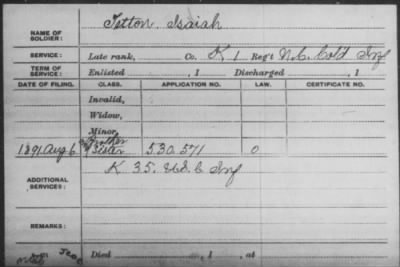 NAME OF SOLDIER: Tetton Isaiah
SERVICE: Late rank, Co. K 1 Reg't N.C. Cold Inf
TERM OF SERVICE: Enlisted , 1 Discharged , 1
DATE OF FILING. CLASS. APPLICATION NO. LAW. CERTIFICATE NO.
Invalid,
Widow,
Minor,
1891 Aug 6 Brother & Sister 530.571 0
ADDITIONAL SERVICES: K 35. U.S.C Inf
REMARKS:
Died , 1 , at